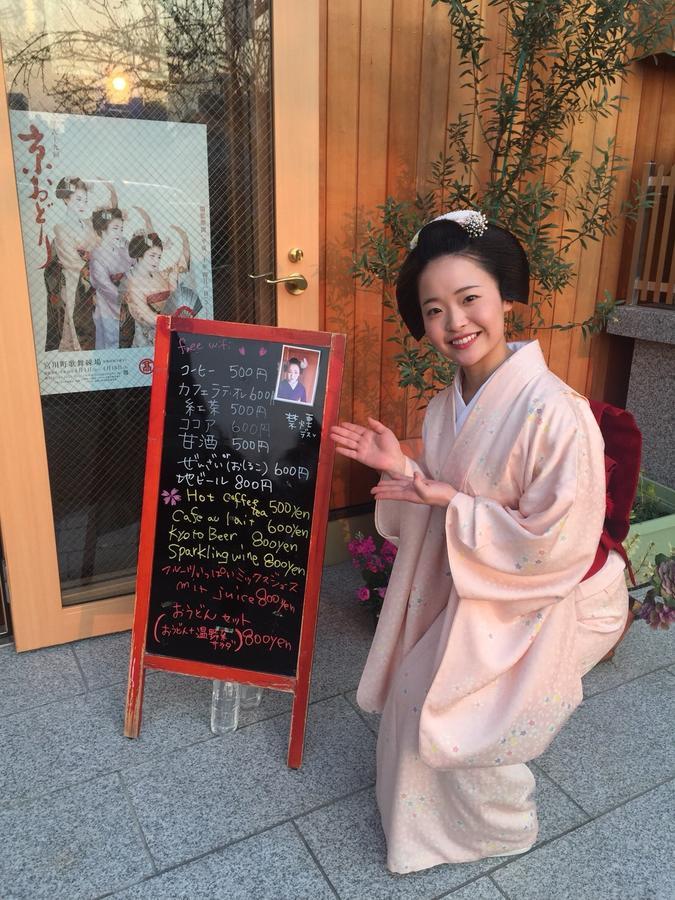 京おどり
宮川町歌舞練場
4月1日 4月16日
free wifi
コーヒー 500円
カフェラテ・オレ 600円
紅茶 500円
ココア 600円
甘酒 500円
ぜんざい(おしるこ) 600円
地ビール 800円
禁煙
デス
Hot coffee tea 500yen
Cafe au lait 600yen
Kyoto Beer 800yen
Sparkling wine 800yen
フルーツいっぱいミックスジュース
mix juice 800yen
おうどんセット
(おうどん+温野菜サラダ) 800yen